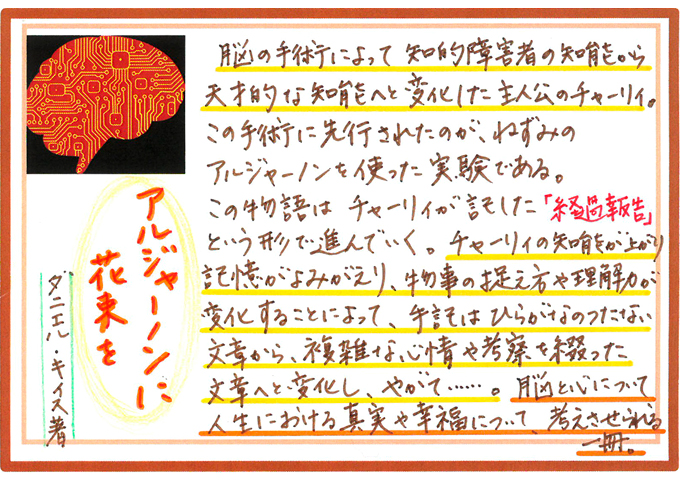 脳の手術によって知的障害者の知能から
天才的な知能へと変化した主人公のチャーリィ。
この手術に先行されたのが、ねずみの
アルジャーノンを使った実験である。
この物語はチャーリィが記した「経過報告」
という形で進んでいく。チャーリィの知能が上がり
記憶がよみがえり、物事の捉え方や理解力が
変化することによって、手記はひらがなのつたない
文章から、複雑な心情や考察を綴った
文章へと変化し、やがて……。脳と心について
人生における真実や幸福について、考えさせられる
一冊。
アルジャーノンに
花束を
ダニエル・キイス著